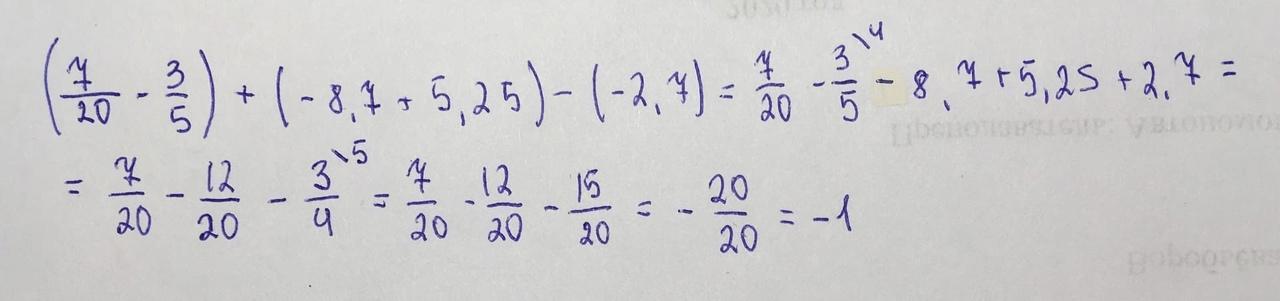 (7/20 - 3/5) + (-8,7 + 5,25) - (-2,7) = 7/20 - 3\4/5 - 8,7 + 5,25 + 2,7 =
= 7/20 - 12/20 - 3\5/4 = 7/20 - 12/20 - 15/20 = - 20/20 = -1